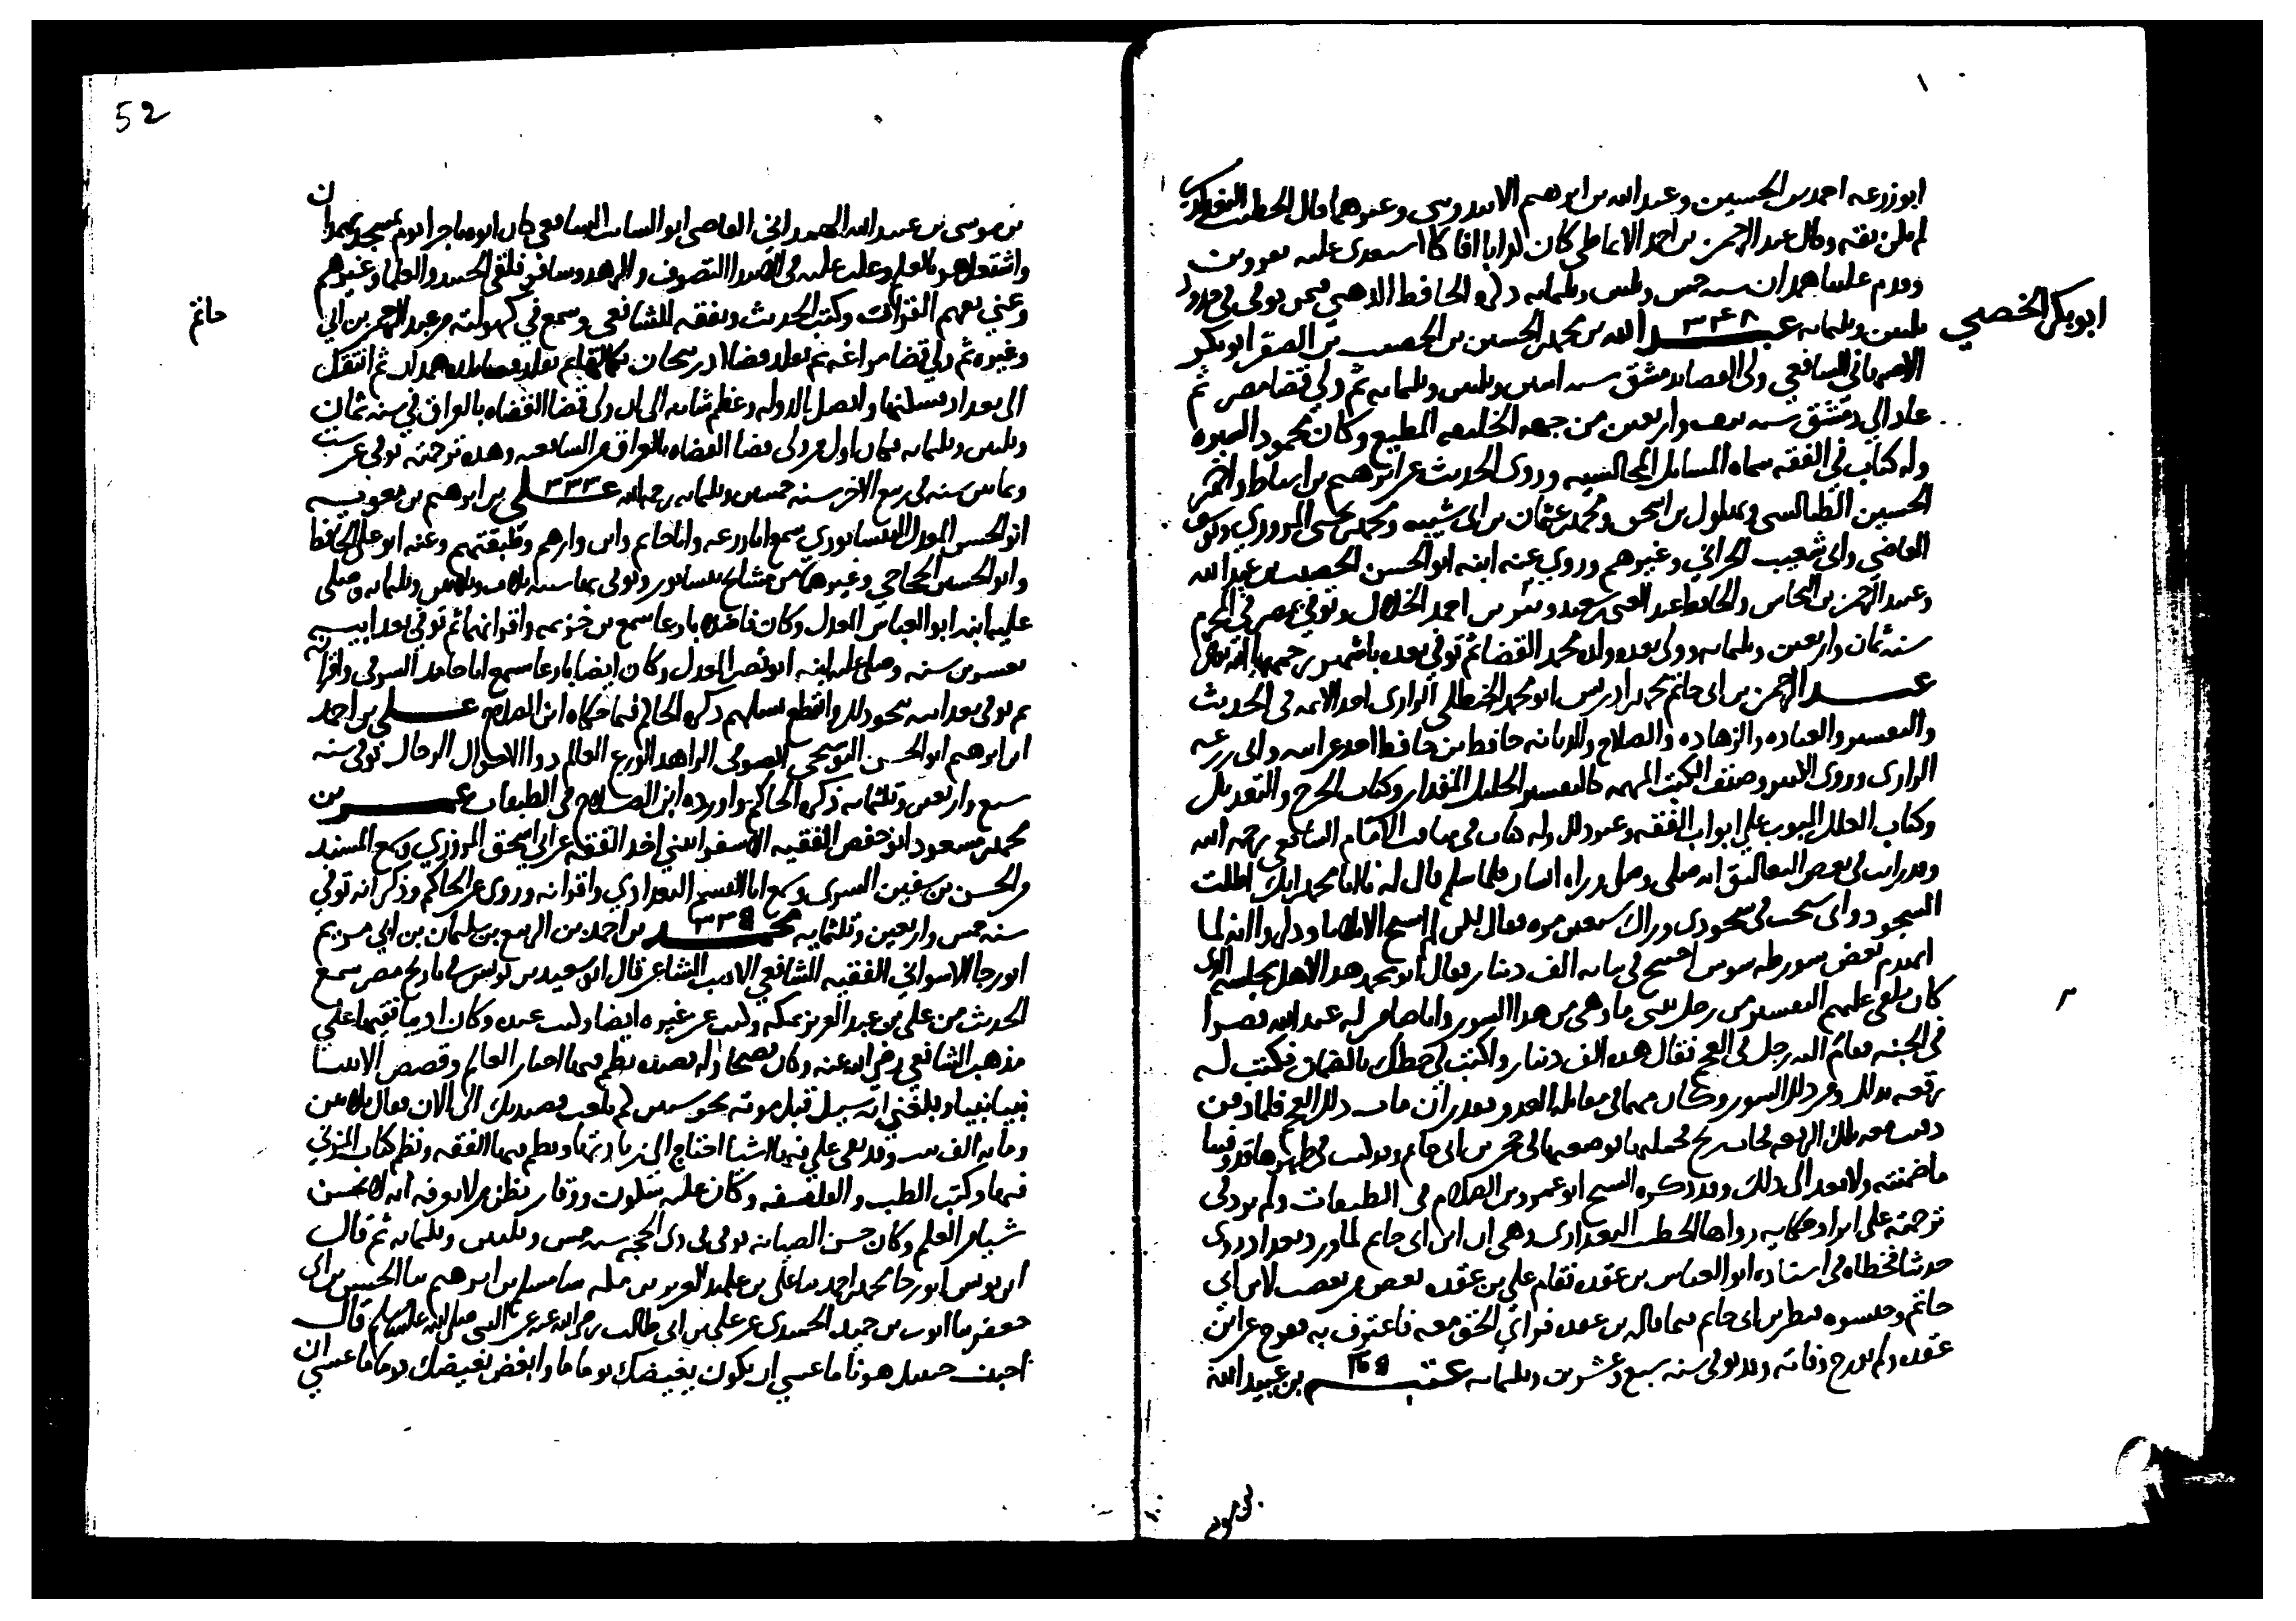 ابو زرعه احمد بن الحسين وعبد الله بن ابرهيم الابندوني وغيرهما قال الخطيب البغدادي
لم يكن بثقه وقال عبد الرحمن بن احمد الانماطي كان
وقدم علينا همدان سنه خمس وثلثين وثلثمايه ذكره الحافظ الذهبي فيمن توفي في حدود
ابو بكر الخصيبي
ثلثين وثلثمايه ٣٤٨ عبد الله بن محمد بن الحسين بن الخصيب بن الصقر ابو بكر
الاصبهاني الشافعي ولي القضا بدمشق سنه اثنين وثلثين وثلثمايه ثم ولي قضا مصر ثم
عاد الي دمشق سنه نيف واربعين من جهه الخليفه المطيع وكان محمود السيره
وله كتاب في الفقه سماه المسايل المجالسيه وروى الحديث عن ابرهيم بن اسباط واحمد بن
الحسين الطيالسي وبهلول بن اسحق ومحمد بن عثمان بن ابي شيبه ومحمد بن يحيى المروزي ويوسف
القاضي وابي شعيب الحراني وغيرهم وروي عنه ابنه ابو الحسن الخصيب بن عبد الله
وعبد الرحمن بن النحاس والحافظ عبد الغني بن سعيد ومنير بن احمد الخلال وتوفي بمصر في المحرم
سنه ثمان واربعين وثلثمايه وولي بعده ولده محمد القضا ثم توفي بعده باشهر رحمهما الله تعالى
عبد الرحمن بن ابي حاتم محمد بن ادريس ابو محمد الحنظلي الرازي احد الايمه في الحديث
والتفسير والعباده والزهاده والصلاح والديانه حافظ بن حافظ اخذ عن ابيه وابي زرعه
الرازي وروى الكثير وصنف الكتب المهمه كالتفسير الجليل المقدار وكتاب الجرح والتعديل
وكتاب العلل المبوب علي ابواب الفقه وغير ذلك وله كتاب في مناقب الامام الشافعي رحمه الله
وقد رايت في بعض التعاليق انه صلى وصلى وراه انسان فلما سلم قال له يا ابا محمد انك اطلت
السجود واني سبحت في سجودي وراك سبعين مره فقال
انهدم بعض سور طوس احتيج في بنايه الف دينار فقال ابو محمد هذا لاهل مجلسه الذي
كان يلقي عليهم التفسير من رجل يبني ما وهى من هذا السور وانا ضامن له عند الله قصرا
في الجنه فقام اليه رجل من العجم فقال هذه الف دينار واكتب لي خطك بالضمان فكتب له
رقعه بذلك وعمر ذلك السور وقدر ان مات ذلك العجمي فلما دفن
دفنت معه تلك الرقعه فجات ريح فحملتها فوضعتها في حجر بن ابي حاتم وقد كتب في ظهرها قد وفينا
ما ضمنته ولا تعد الى ذلك وقد ذكره الشيخ ابو عمرو بن الصلاح في الطبقات ولم يزد في
ترجمته علي ايراد حكايه رواها الخطيب البغدادي وهي ان ابن ابي حاتم لما ورد بغداد روى
حديثا فخطاه في اسناده ابو العباس بن عقده فقام علي بن عقده بعض من تعصب لابن ابي
حاتم وحبسوه فنظر بن ابي حاتم فيما قاله بن عقده فراي الحق معه فاعترف به فخرج عن ابن
عقده ولم يورخ وفاته وقد توفي سنه سبع وعشرين وثلثمايه عتبه بن عبيد الله
52
بن موسى بن عبيد الله الهمداني القاضي ابو السايب الشافعي كان ابوه تاجرا يوم بمسجد بهمدان
واشتغل هو بالعلم وغلب عليه في الابتدا التصوف والزهد وسافر فلقي الجنيد والعلما وغيرهم
وعني بفهم القران وكتب الحديث وتفقه للشافعي وسمع في كهولته من عبد الرحمن بن ابي
حاتم
وغيره ثم ولي قضا مراغه ثم تقلد قضا اذربيجان بكمالها ثم تقلد قضا همدان ثم انتقل
الى بغداد فسكنها واتصل بالدوله وعظم شانه الى ان ولي قضا القضاه بالعراق في سنه ثمان
وثلثين وثلثمايه فكان اول من ولي قضا القضاه بالعراق من الشافعيه وهذه ترجمته توفي عن ست
وثمانين سنه في ربيع الاخر سنه خمسين وثلثمايه رحمه الله ٣٣٣ علي بن ابرهيم بن معويه
ابو الحسن المعدل النيسابوري سمع ابا زرعه وابا حاتم وابن واره وطبقتهم وعنه ابو علي الحافظ
وابو الحسين الحجاجي وغيرهما من مشايخ نيسابور وتوفي بها سنه ثلاث وثلثين وثلثمايه وصلى
عليه ابنه ابو العباس المعدل وكان فاضلا بارعا سمع بن خزيمه واقرانهما ثم توفي بعد ابيه
بعشرين سنه وصلى عليه ابنه ابو نصر المعدل وكان ايضا بارعا سمع ابا حامد الشرقي واقرانه
ثم توفي بعد ابيه بنحو ذلك وانقطع نسلهم ذكره الحاكم فيما حكاه ابن الصلاح علي بن احمد
ابن ابرهيم ابو الحسن البوشنجي الصوفي الزاهد الورع العالم ذو الاحوال الرحال توفي سنه
سبع واربعين وثلثمايه ذكره الحاكم واورده ابن الصلاح في الطبقات عمر بن
محمد بن مسعود ابو حفص الفقيه الاسفرايني اخذ الفقه عن ابي اسحق المروزي وسمع المسند
من الحسن بن سفين النسوي وسمع ابا القسم البغوي واقرانه وروى عن الحاكم وذكر انه توفي
سنه خمس واربعين وثلثمايه ٣٣٥ محمد بن احمد بن الربيع بن سليمان بن ابي مريم
ابو رجا الاسواني الفقيه الشافعي الاديب الشاعر قال ابو سعيد بن يونس في تاريخ مصر سمع
الحديث من علي بن عبد العزيز بمكه وكتب عن غيره ايضا وكتبت عنه وكان اديبا فقيها علي
مذهب الشافعي رضي الله عنه وكان فصيحا وله قصيده نظم فيها اخبار العالم وقصص الانبيا
نبيا نبيا وبلغني انه سيل قبل موته بنحو سنتين كم بلغت قصيدتك الى الان فقال ثلاثين
ومايه الف بيت وقد بقي علي فيها اشيا احتاج الى زيادتها ونظم فيها الفقه ونظم كتاب المزني
فيها وكتب الطب والفلسفه وكان عليه سكون ووقار يظن من لا يعرفه انه لا يحسن
شيا من العلم وكان حسن الصيانه توفي في ذي الحجه سنه خمس وثلثين وثلثمايه ثم قال
ابن يونس ابو رجا محمد بن احمد ثنا علي بن عبد العزيز بمكه ثنا مسلم بن ابرهيم ثنا الحسن بن ابي
جعفر ثنا ايوب بن حميد الحميدي عن علي بن ابي طالب رضي الله عنه عن النبي صلى الله عليه وسلم قال
احبب حبيبك هونا ما عسي ان يكون بغيضك يوما ما وابغض بغيضك يوما ما عسى ان